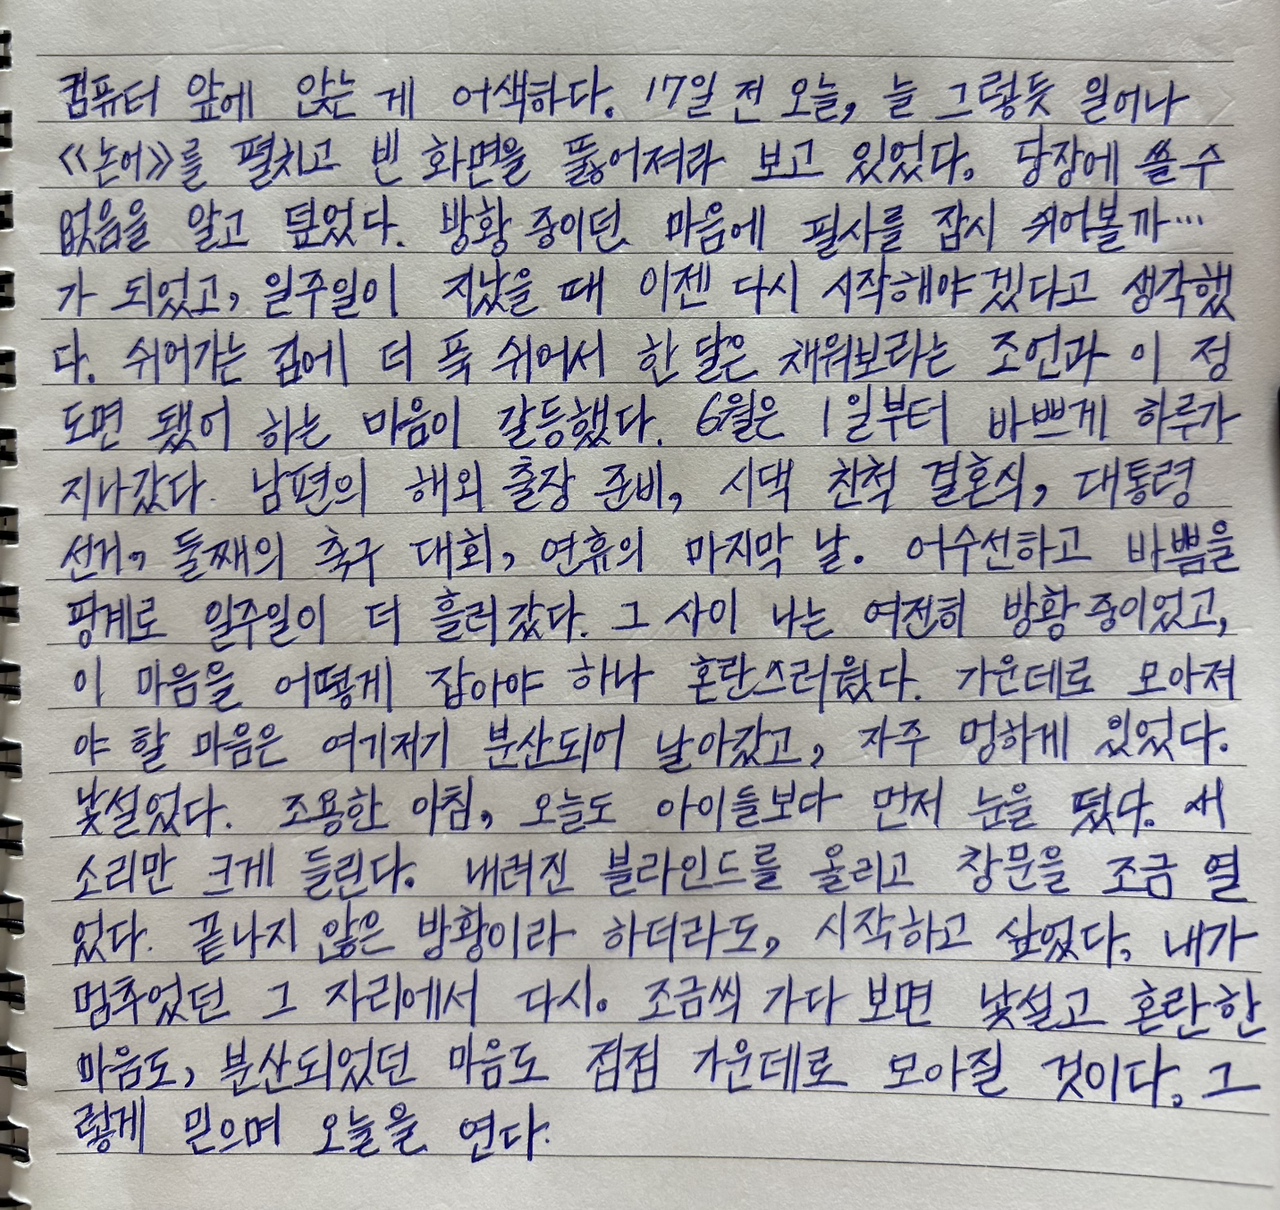 컴퓨터 앞에 앉는 게 어색하다. 17일 전 오늘, 늘 그렇듯 일어나
《논어》를 펼치고 빈 화면을 뚫어져라 보고 있었다. 당장에 쓸 수
없음을 알고 덮었다. 방황 중이던 마음에 필사를 잠시 쉬어볼까…
가 되었고, 일주일이 지났을 때 이젠 다시 시작해야겠다고 생각했
다. 쉬어가는 김에 더 푹 쉬어서 한 달은 채워보라는 조언과 이 정
도면 됐어 하는 마음이 갈등했다. 6월은 1일부터 바쁘게 하루가
지나갔다. 남편의 해외 출장 준비, 시댁 친척 결혼식, 대통령
선거, 둘째의 축구 대회, 연휴의 마지막 날. 어수선하고 바쁨을
핑계로 일주일이 더 흘러갔다. 그 사이 나는 여전히 방황 중이었고,
이 마음을 어떻게 잡아야 하나 혼란스러웠다. 가운데로 모아져
야 할 마음은 여기저기 분산되어 날아갔고, 자주 멍하게 있었다.
낯설었다. 조용한 아침, 오늘도 아이들보다 먼저 눈을 떴다. 새
소리만 크게 들린다. 내려진 블라인드를 올리고 창문을 조금 열
었다. 끝나지 않은 방황이라 하더라도, 시작하고 싶었다, 내가
멈추었던 그 자리에서 다시. 조금씩 가다 보면 낯설고 혼란한
마음도, 분산되었던 마음도 점점 가운데로 모아질 것이다. 그
렇게 믿으며 오늘을 연다.